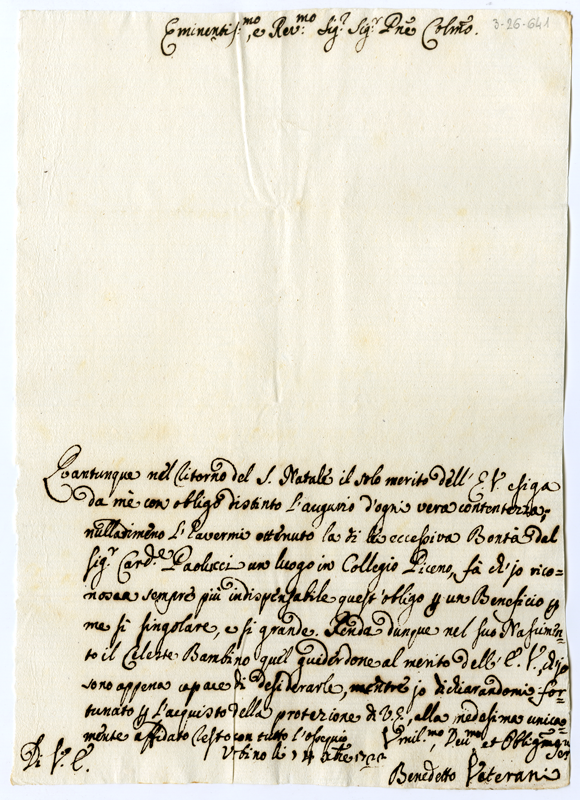 3-26-641
Eminentis.mo, e Rev.mo Sig.r Sig.r Pne Colmo.
Quantunque nel ritorno del S. Natale il solo merito dell' E. V. esiga
da me con obligo distinto l'augurio d'ogni vera contentezza,
nulladimeno l'havermi ottenuto la di lei eccessiva Bontà dal
Sig.r Card.le Paolucci un luogo in Collegio Piceno, fà ch'io rico=
nosca sempre più indispensabile quest'obligo p un Beneficio p
me si singolare, e si grande. Renda dunque nel suo Nascimen=
to il Celeste Bambino quel guiderdone al merito dell' E. V., ch'io
sono appena capace di desiderarle, mentre io dichiarandomi for=
tunato p l'acquisto della protezione di V. E., alla medesima unica=
mente affidato resto con tutto l'ossequio
Di V. E.
Urbino li 14 Xbre
Umil.mo, Dev.mo et Obligmo Ser
Benedetto Veterani